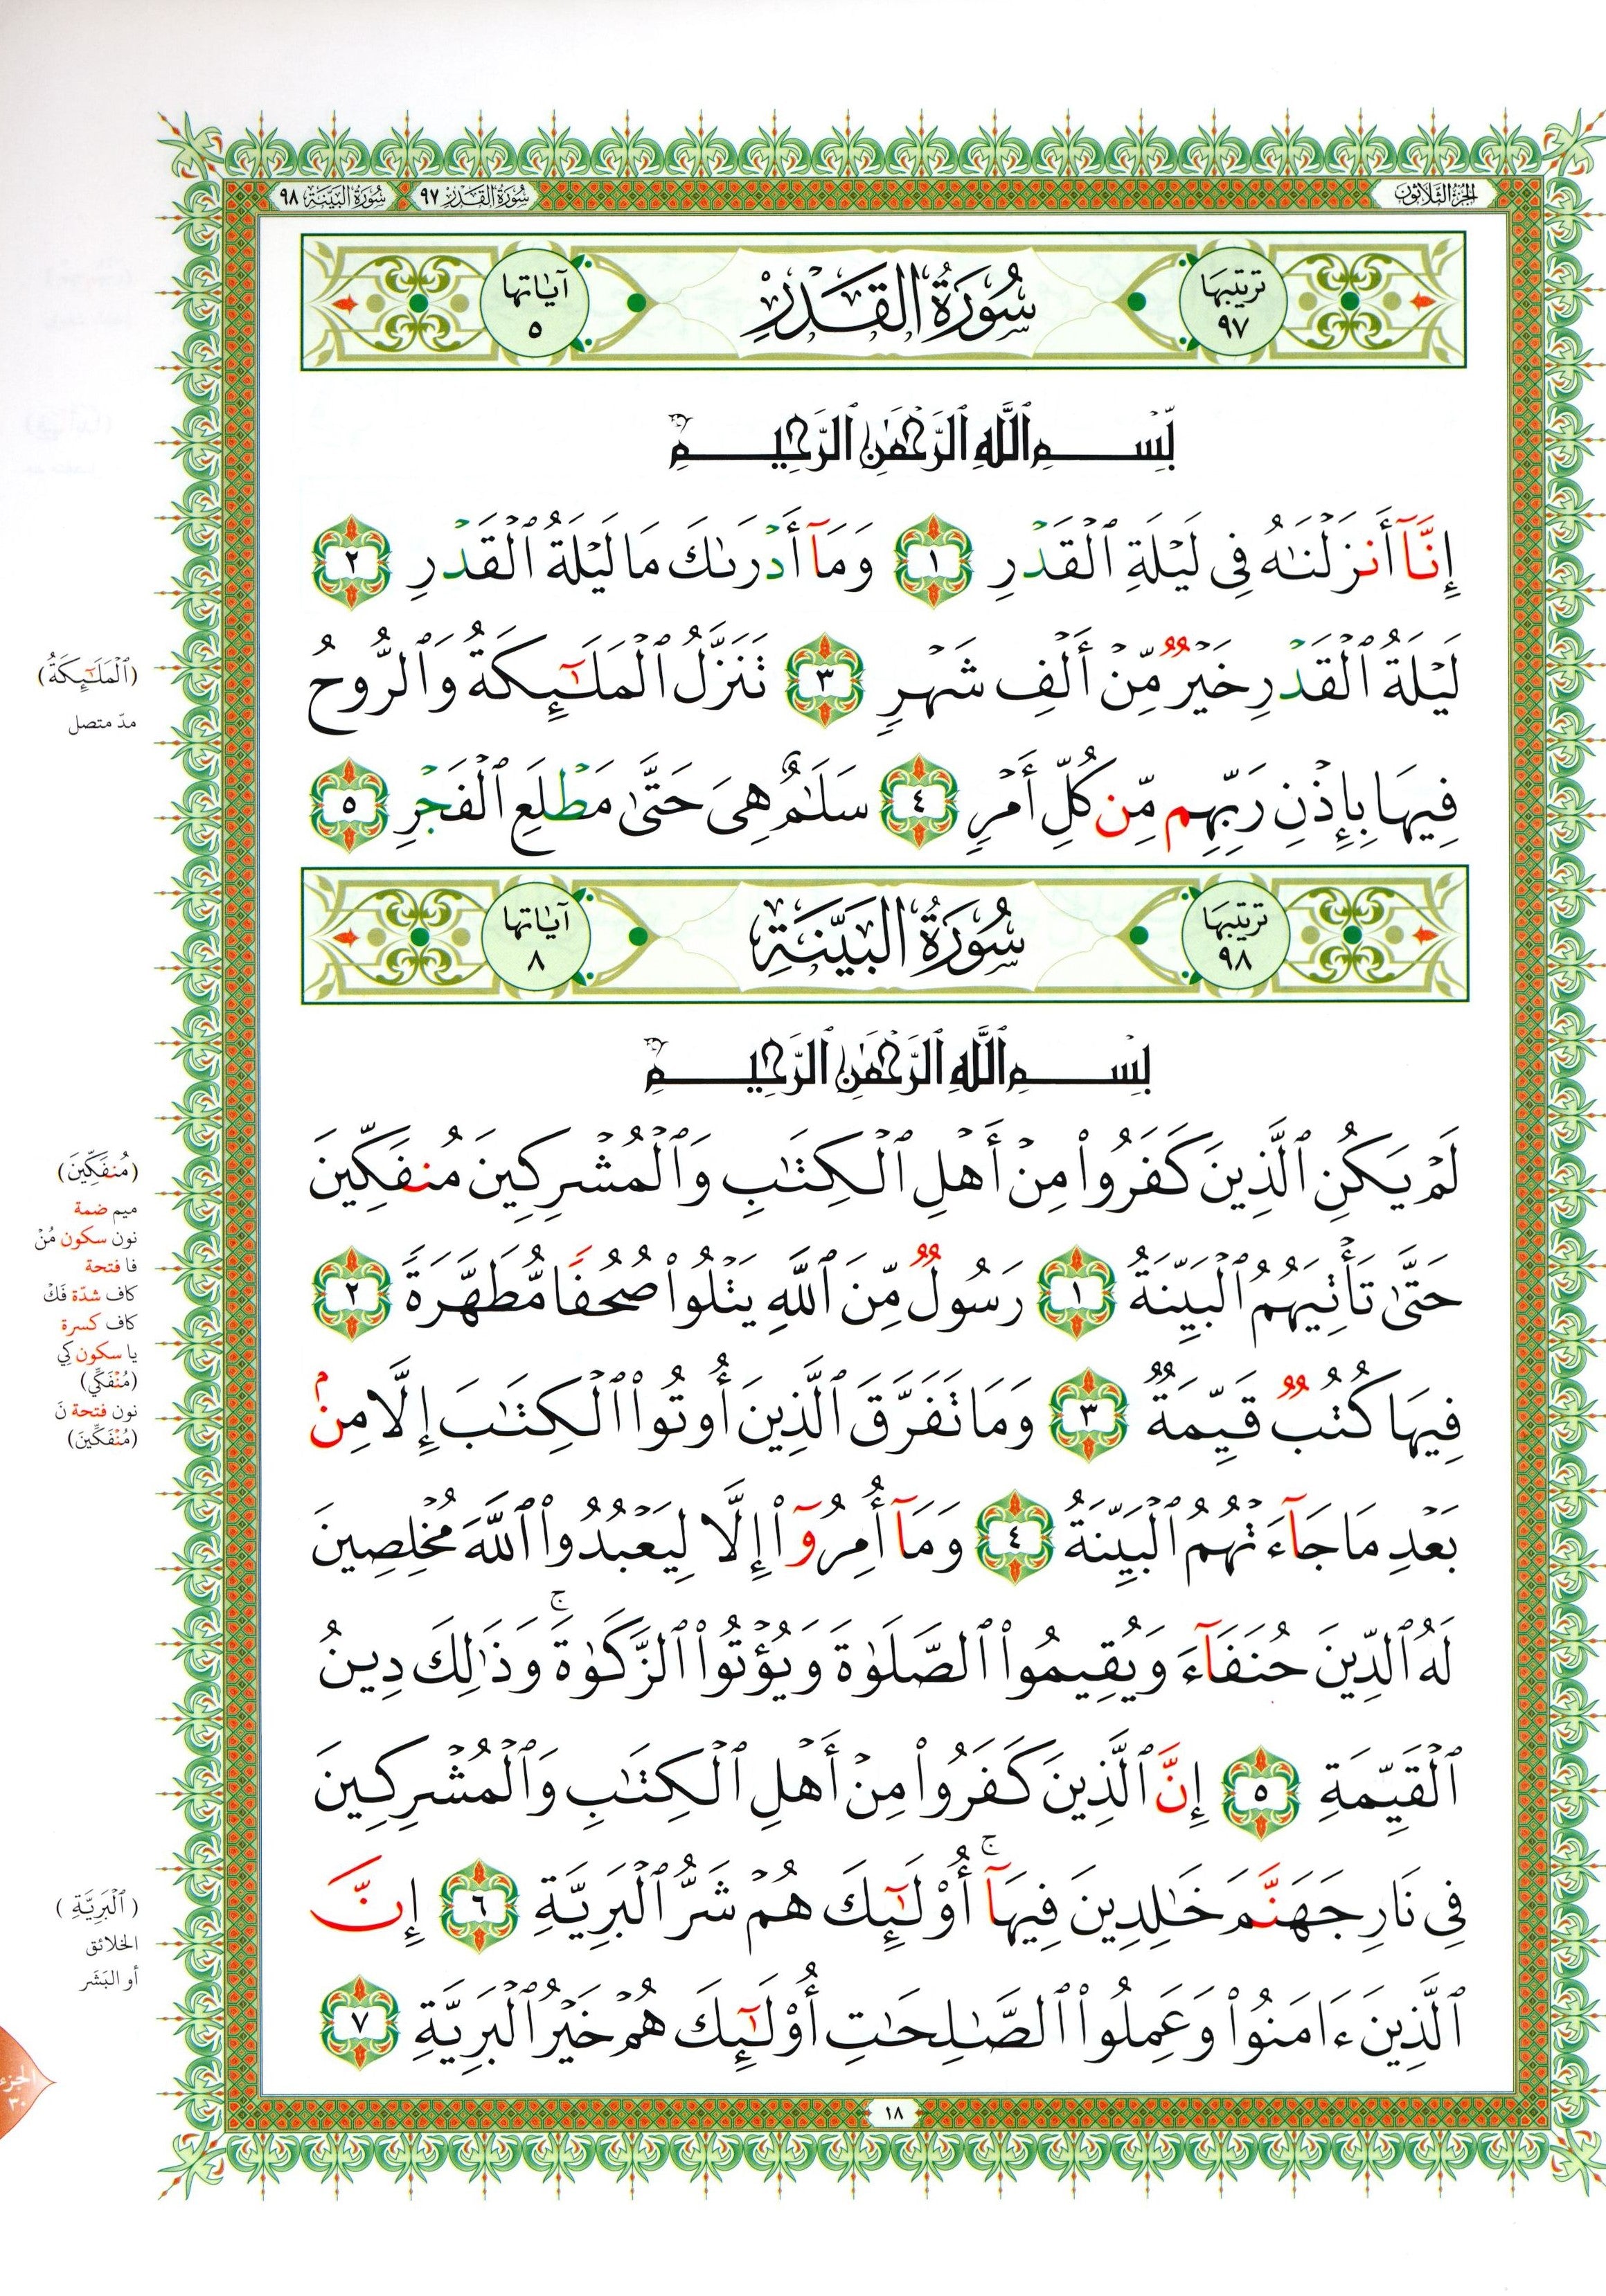 الجزء الثلاثون
سُورَةُ القَدْرِ ٩٧ سُورَةُ البَيِّنَةِ ٩٨
ترتيبها ٩٧ سُورَةُ القَدْرِ آيَاتها ٥
بِّسۡمِ ٱللَّهِ ٱلرَّحۡمَٰنِ ٱلرَّحِيمِ
إِنَّآ أَنزَلۡنَٰهُ فِى لَيۡلَةِ ٱلۡقَدۡرِ ١ وَمَآ أَدۡرَىٰكَ مَا لَيۡلَةُ ٱلۡقَدۡرِ ٢
لَيۡلَةُ ٱلۡقَدۡرِ خَيۡرٌ مِّنۡ أَلۡفِ شَهۡرٍ ٣ تَنَزَّلُ ٱلۡمَلَٰٓئِكَةُ وَٱلرُّوحُ
فِيهَا بِإِذۡنِ رَبِّهِم مِّن كُلِّ أَمۡرٍ ٤ سَلَٰمٌ هِىَ حَتَّىٰ مَطۡلَعِ ٱلۡفَجۡرِ ٥
(ٱلۡمَلَٰٓئِكَةُ)
مدّ متصل
ترتيبها ٩٨ سُورَةُ البَيِّنَةِ آيَاتها ٨
بِسۡمِ ٱللَّهِ ٱلرَّحۡمَٰنِ ٱلرَّحِيمِ
لَمۡ يَكُنِ ٱلَّذِينَ كَفَرُواْ مِنۡ أَهۡلِ ٱلۡكِتَٰبِ وَٱلۡمُشۡرِكِينَ مُنفَكِّينَ
حَتَّىٰ تَأۡتِيَهُمُ ٱلۡبَيِّنَةُ ١ رَسُولٌ مِّنَ ٱللَّهِ يَتۡلُواْ صُحُفًا مُّطَهَّرَةً ٢
فِيهَا كُتُبٌ قَيِّمَةٌ ٣ وَمَا تَفَرَّقَ ٱلَّذِينَ أُوتُواْ ٱلۡكِتَٰبَ إِلَّا مِنۢ
بَعۡدِ مَا جَآءَتۡهُمُ ٱلۡبَيِّنَةُ ٤ وَمَآ أُمِرُوٓاْ إِلَّا لِيَعۡبُدُواْ ٱللَّهَ مُخۡلِصِينَ
لَهُ ٱلدِّينَ حُنَفَآءَ وَيُقِيمُواْ ٱلصَّلَوٰةَ وَيُؤۡتُواْ ٱلزَّكَوٰةَۚ وَذَٰلِكَ دِينُ
ٱلۡقَيِّمَةِ ٥ إِنَّ ٱلَّذِينَ كَفَرُواْ مِنۡ أَهۡلِ ٱلۡكِتَٰبِ وَٱلۡمُشۡرِكِينَ
فِى نَارِ جَهَنَّمَ خَٰلِدِينَ فِيهَآۚ أُوْلَٰٓئِكَ هُمۡ شَرُّ ٱلۡبَرِيَّةِ ٦ إِنَّ
ٱلَّذِينَ ءَامَنُواْ وَعَمِلُواْ ٱلصَّٰلِحَٰتِ أُوْلَٰٓئِكَ هُمۡ خَيۡرُ ٱلۡبَرِيَّةِ ٧
(مُنفَكِّينَ)
ميم ضمة
نون سكون مُنۡ
فا فتحة
كاف شدّة فَكۡ
كاف كسرة
يا سكون كِي
(مُنۡفَكِّي)
نون فتحة نَ
(مُنۡفَكِّينَ)
(ٱلۡبَرِيَّةِ)
الخلائق
أو البَشَر
الجزء
٣٠
١٨